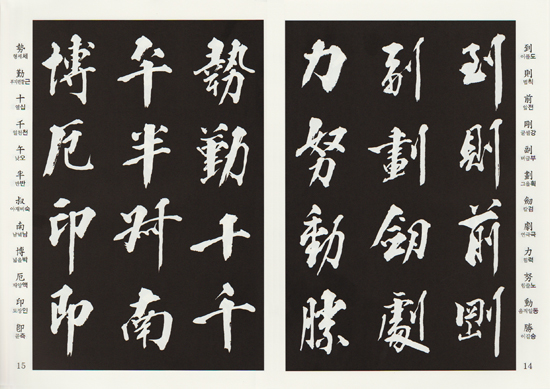 到則前剛
副劃劒劇
力努動勝
到
이를도
則
법칙
前
앞전
剛
굳셀강
副
버금부
劃
그을획
劒
칼검
劇
연극극
力
힘력
努
힘쓸노
動
움직일동
勝
이길승
14
勢勤十千
午半叔南
博厄印即
勢
형세세
勤
부지런할근
十
열십
千
일천천
午
낮오
半
반반
叔
아재비숙
南
남녘남
博
넓을박
厄
재앙액
印
도장인
卽
곧즉
15